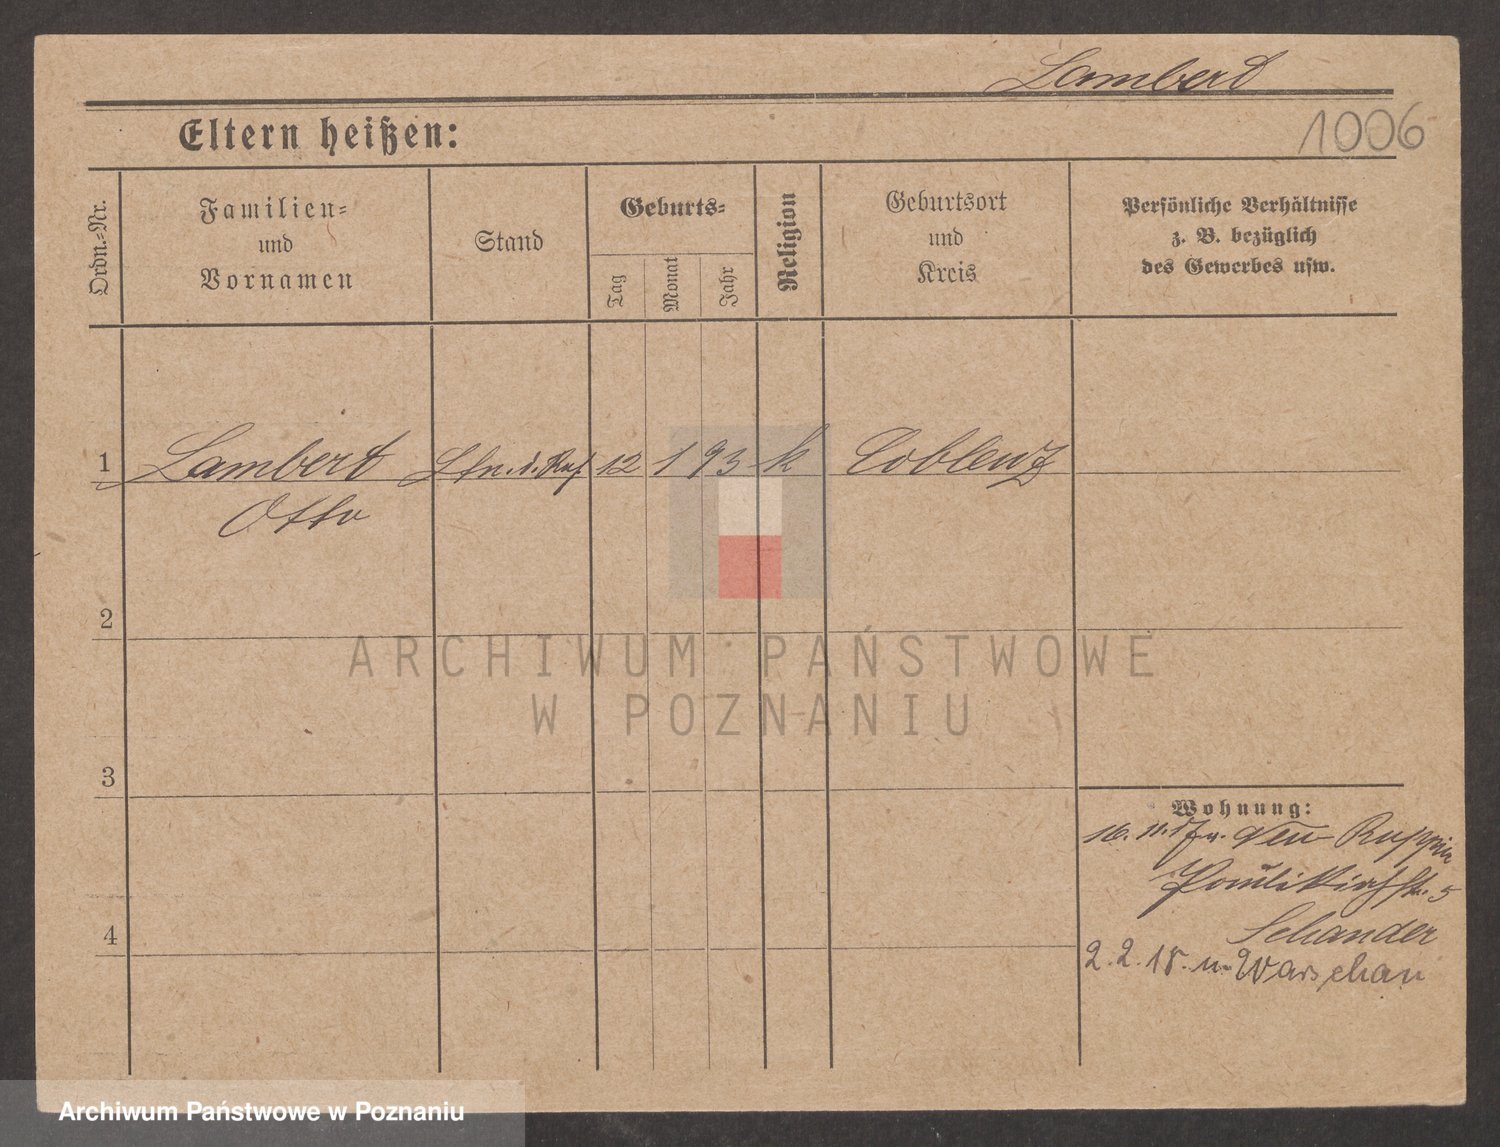 Lambert
1006
Eltern heißen:
Ordn.=Nr.
Familien=
und
Vornamen
Stand
Geburts=
Tag
Monat
Jahr
Religion
Geburtsort
und
Kreis
Persönliche Verhältnisse
z. B. bezüglich
des Gewerbes usw.
1 Lambert Ltn. d. Res 12 1 93 k Coblenz
Otto
2
ARCHIWUM PAŃSTWOWE
W POZNANIU
3
Wohnung:
16. 11. 17 v. Neu-Ruppin
Paulikirchstr. 5
Schander
4
2. 2. 18. n. Warschau
Archiwum Państwowe w Poznaniu